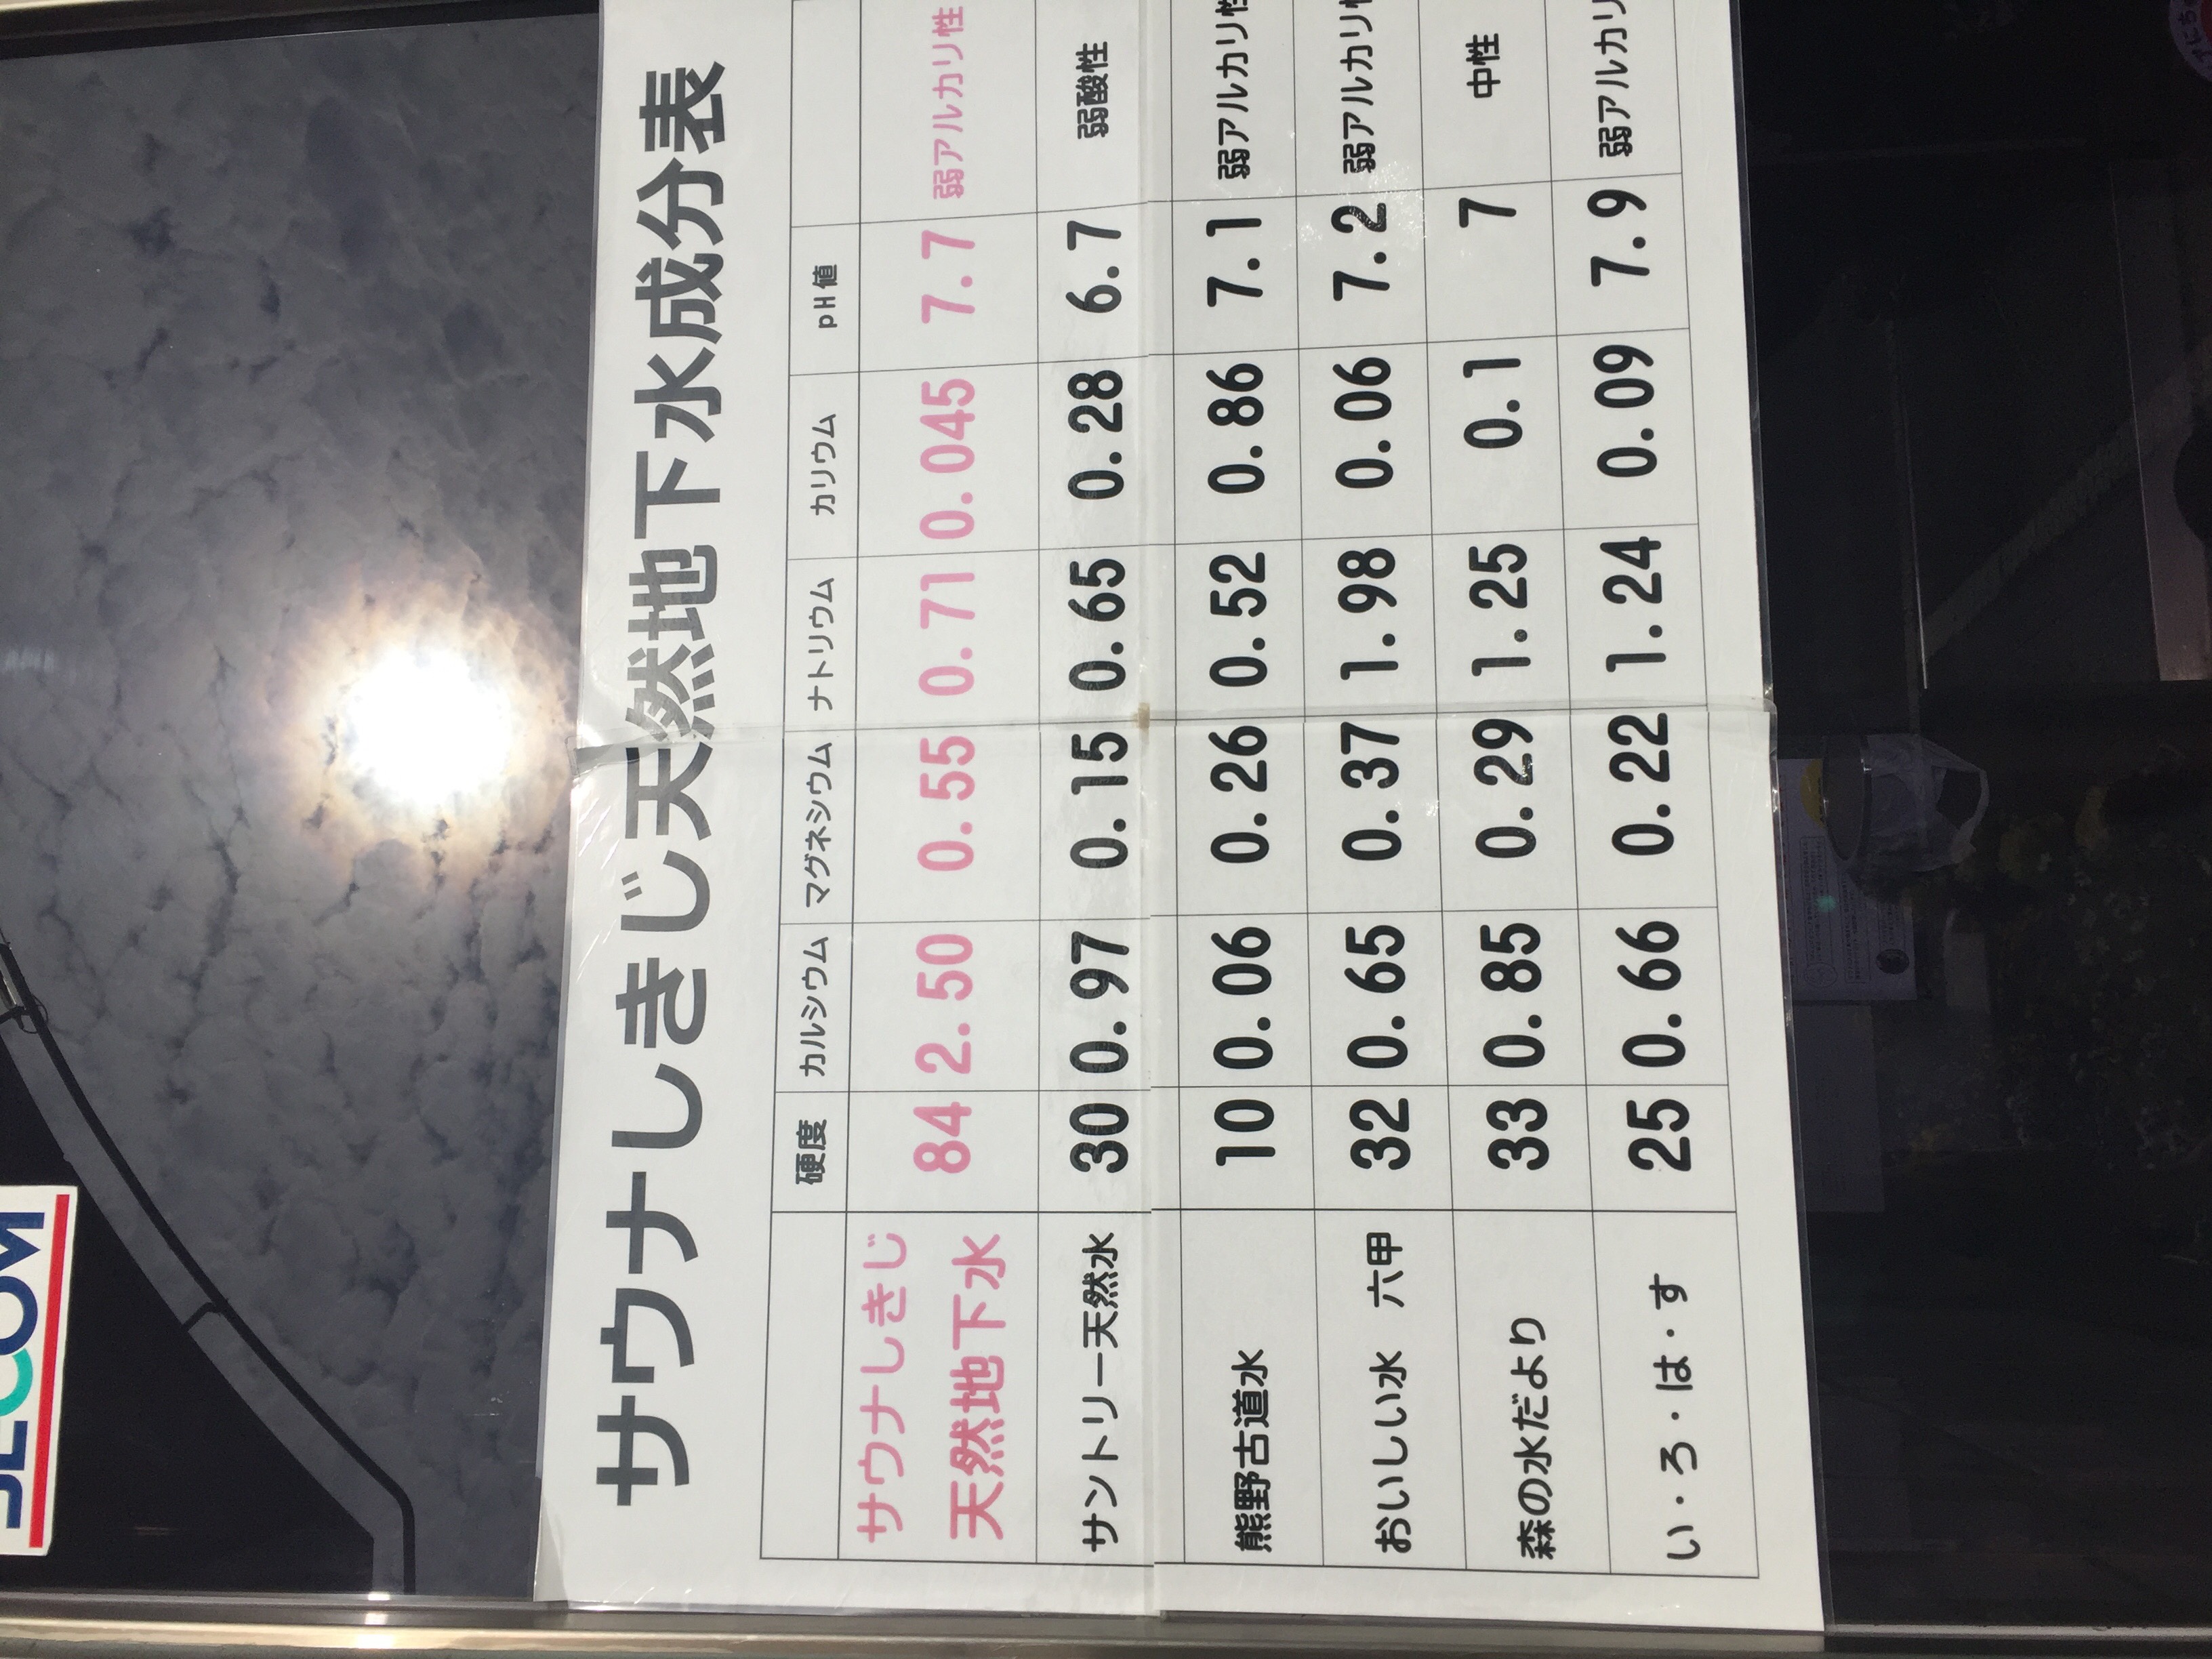 サウナしきじ天然地下水成分表
硬度 カルシウム マグネシウム ナトリウム カリウム pH値
サウナしきじ
天然地下水 84 2.50 0.55 0.71 0.045 7.7 弱アルカリ性
サントリー天然水 30 0.97 0.15 0.65 0.28 6.7 弱酸性
熊野古道水 10 0.06 0.26 0.52 0.86 7.1 弱アルカリ性
おいしい水 六甲 32 0.65 0.37 1.98 0.06 7.2 弱アルカリ性
森の水だより 33 0.85 0.29 1.25 0.1 7 中性
い・ろ・は・す 25 0.66 0.22 1.24 0.09 7.9 弱アルカリ
SECOM